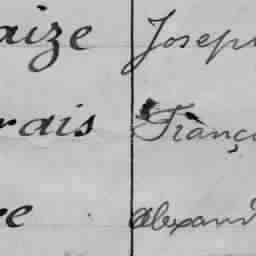 aize Joseph
rais Franço
re Alexand